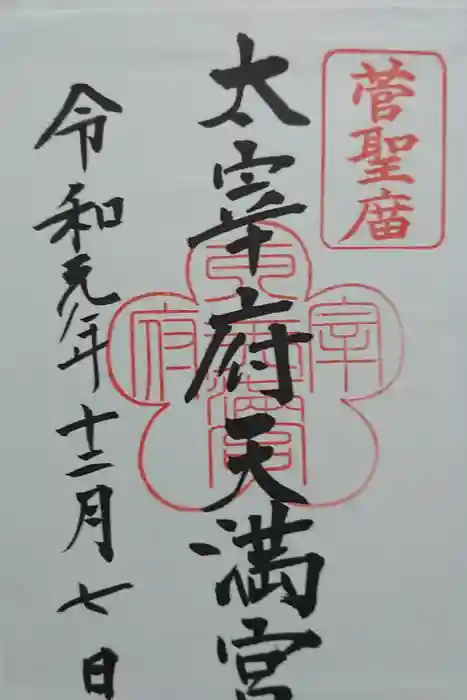 菅聖庿
太宰府天満宮
令和元年十二月七日